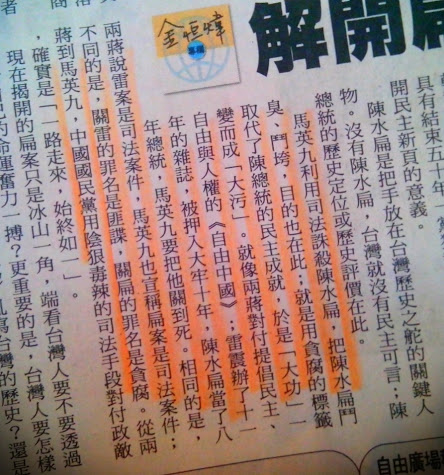 解開
金恒煒
專欄
具有結束五十年
開民主新頁的意義。
陳水扁是把手放在台灣歷史之舵的關鍵人
物。沒有陳水扁，台灣就沒有民主可言；陳
總統的歷史定位或歷史評價在此。
馬英九利用司法誅殺陳水扁，把陳水扁鬥
臭、鬥垮，目的也在此；就是用貪腐的標籤
取代了陳總統的民主成就，於是「大功」一
變而成「大污」。就像兩蔣對付提倡民主、
自由與人權的《自由中國》；雷震辦了十一
年的雜誌，被押入大牢十年，陳水扁當了八
年總統，馬英九要把他關到死。相同的是，
兩蔣說雷案是司法案件，馬英九也宣稱扁案是司法案件；
不同的是，關雷的罪名是匪諜，關扁的罪名是貪腐。從兩
蔣到馬英九，中國國民黨用陰狠毒辣的司法手段對付政敵
，確實是「一路走來，始終如一」。
現在揭開的扁案只是冰山一角，端看台灣人要不要透過
的命運奮力一搏？更重要的是，台灣人要怎樣
寫台灣的歷史？還是
自由廣場